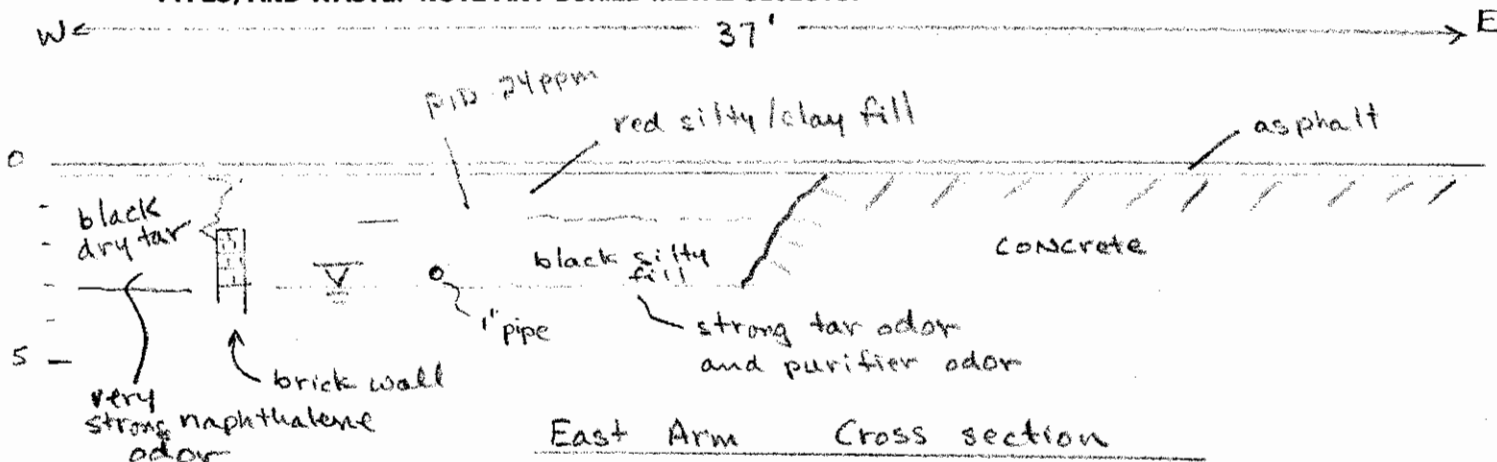 W 37' E
PID 24ppm
red silty/clay fill
asphalt
0
black
dry tar
concrete
black silty
fill
1" pipe
strong tar odor
and purifier odor
5
brick wall
very
strong naphthalene
odor
East Arm Cross section